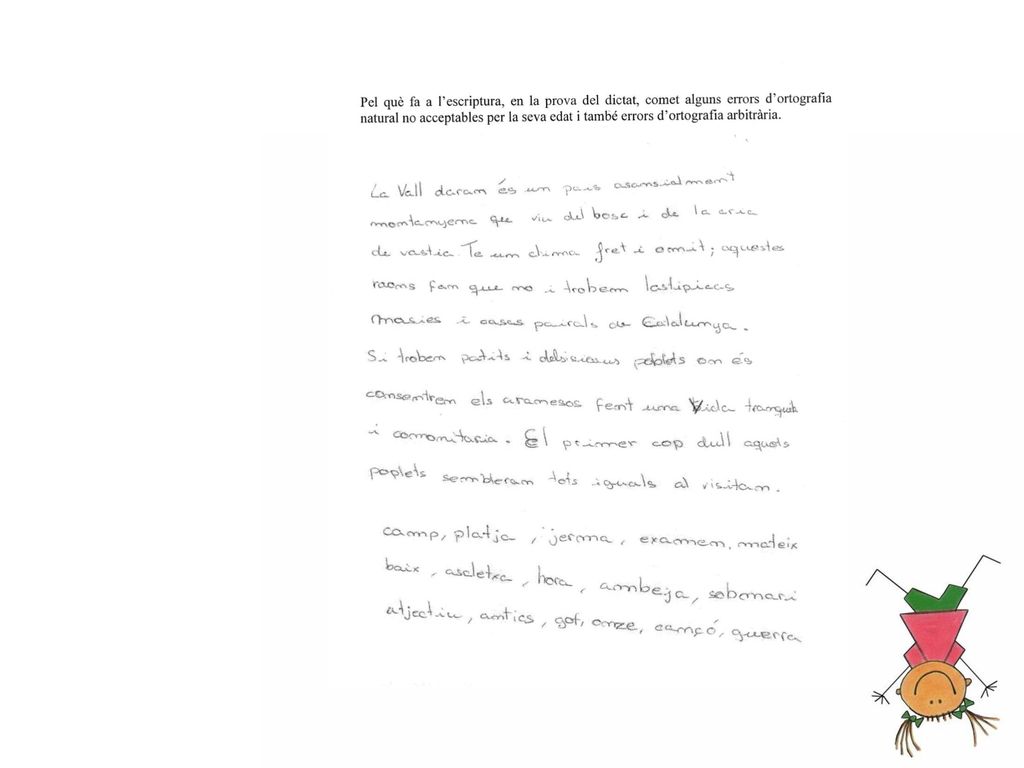 Pel què fa a l'escriptura, en la prova del dictat, comet alguns errors d'ortografia
natural no acceptables per la seva edat i també errors d'ortografia arbitrària.
La Vall daram és un pais asansialment
montanyenc que viu del bosc i de la cria
de vastia. Te un clima fret i omit; aquestes
raons fam que no i trobem lastipicas
masies i cases pairals de Catalunya.
Si trobem patits i delsiciaus poblets on és
consentrem els aramesos fent una vida tranquila
i comonitaria. El primer cop dull aquets
poplets sembleram tots iguals al visitam.
camp, platja, jerma, examem, mateix
baix, ascletxa, hora, ambeja, sobmari
atjectiu, amtics, got, onze, camçó, guerra